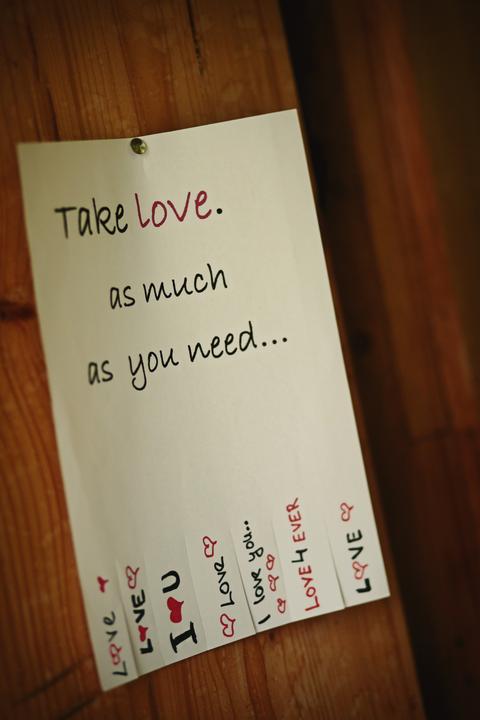 Take love.
as much
as you need...
LOVE
LOVE
I ♥ U
LOVE
I love you...
LOVE 4 EVER
LOVE